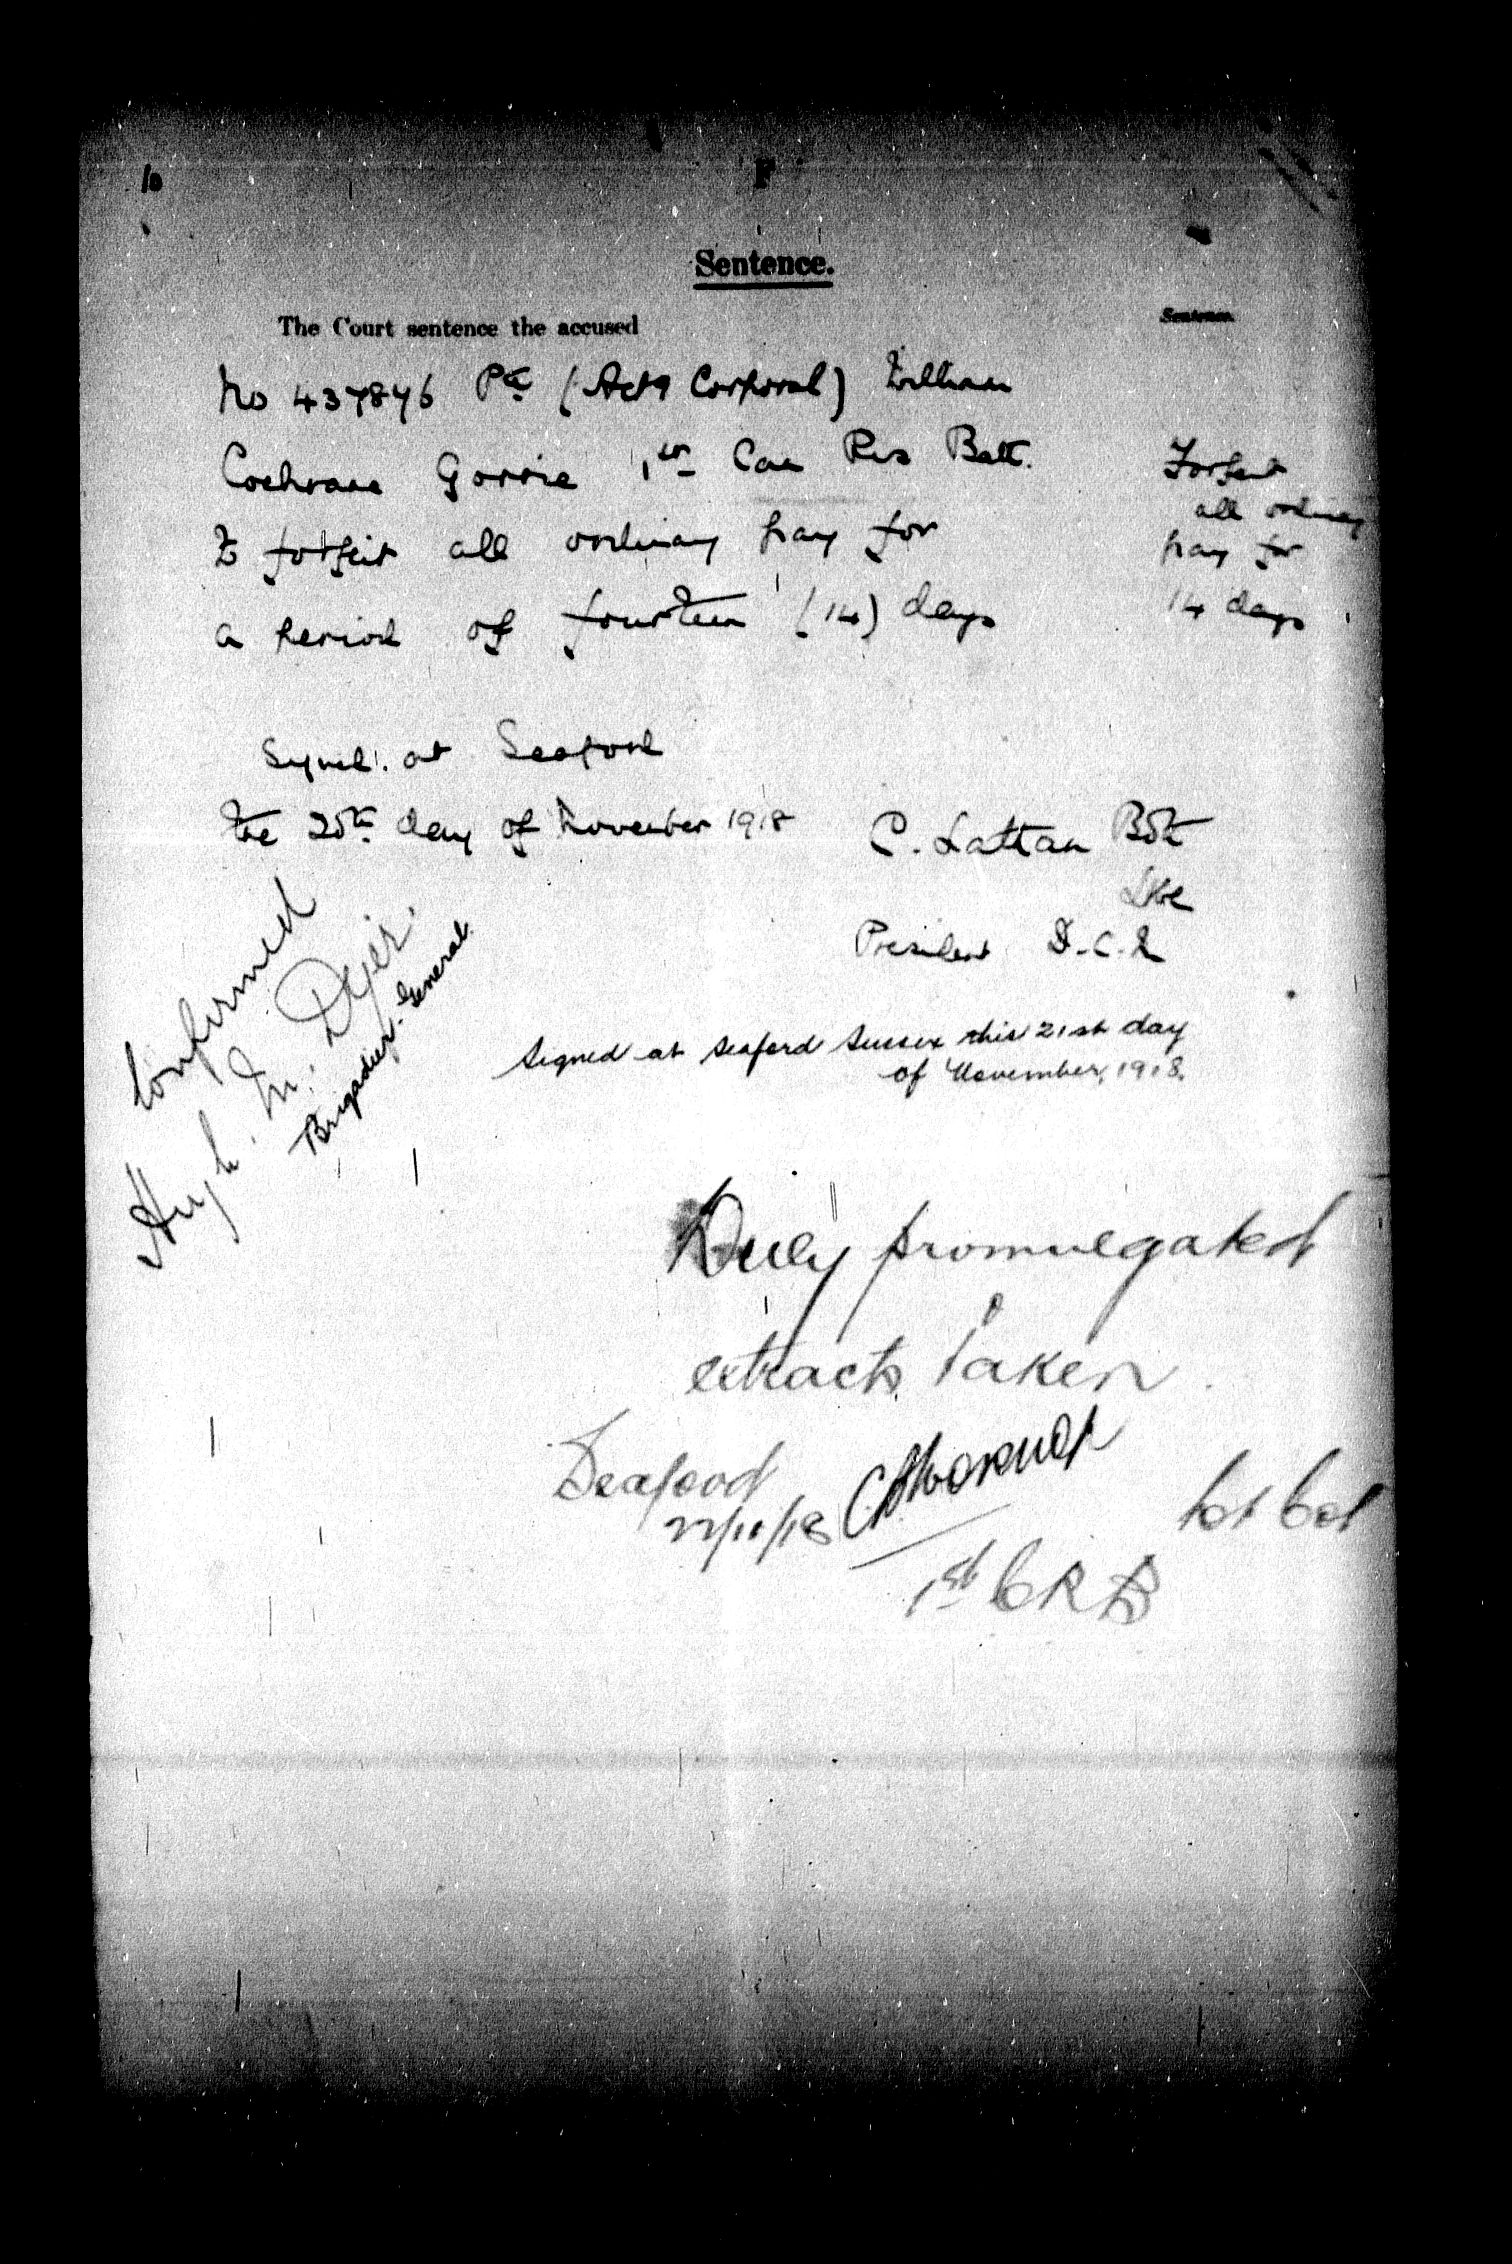 F
Sentence.
The Court sentence the accused
Sentence
No 437876 Pte (Actg Corporal) William
Cochrane Gorrie 1st Can Res Batt.
to forfeit all ordinary pay for
a period of fourteen (14) days
Forfeit
all ordinary
pay for
14 days
Signed. at Seaford
the 20th day of November 1918
C. Lattan
President D.C.M
Confirmed
Hugh. M. Dyer.
Brigadier-General.
Signed at Seaford Sussex this 21st day
of November, 1918.
Duly promulgated
extracts taken
Seaford
22/11/18
Lt Col
1st C R B